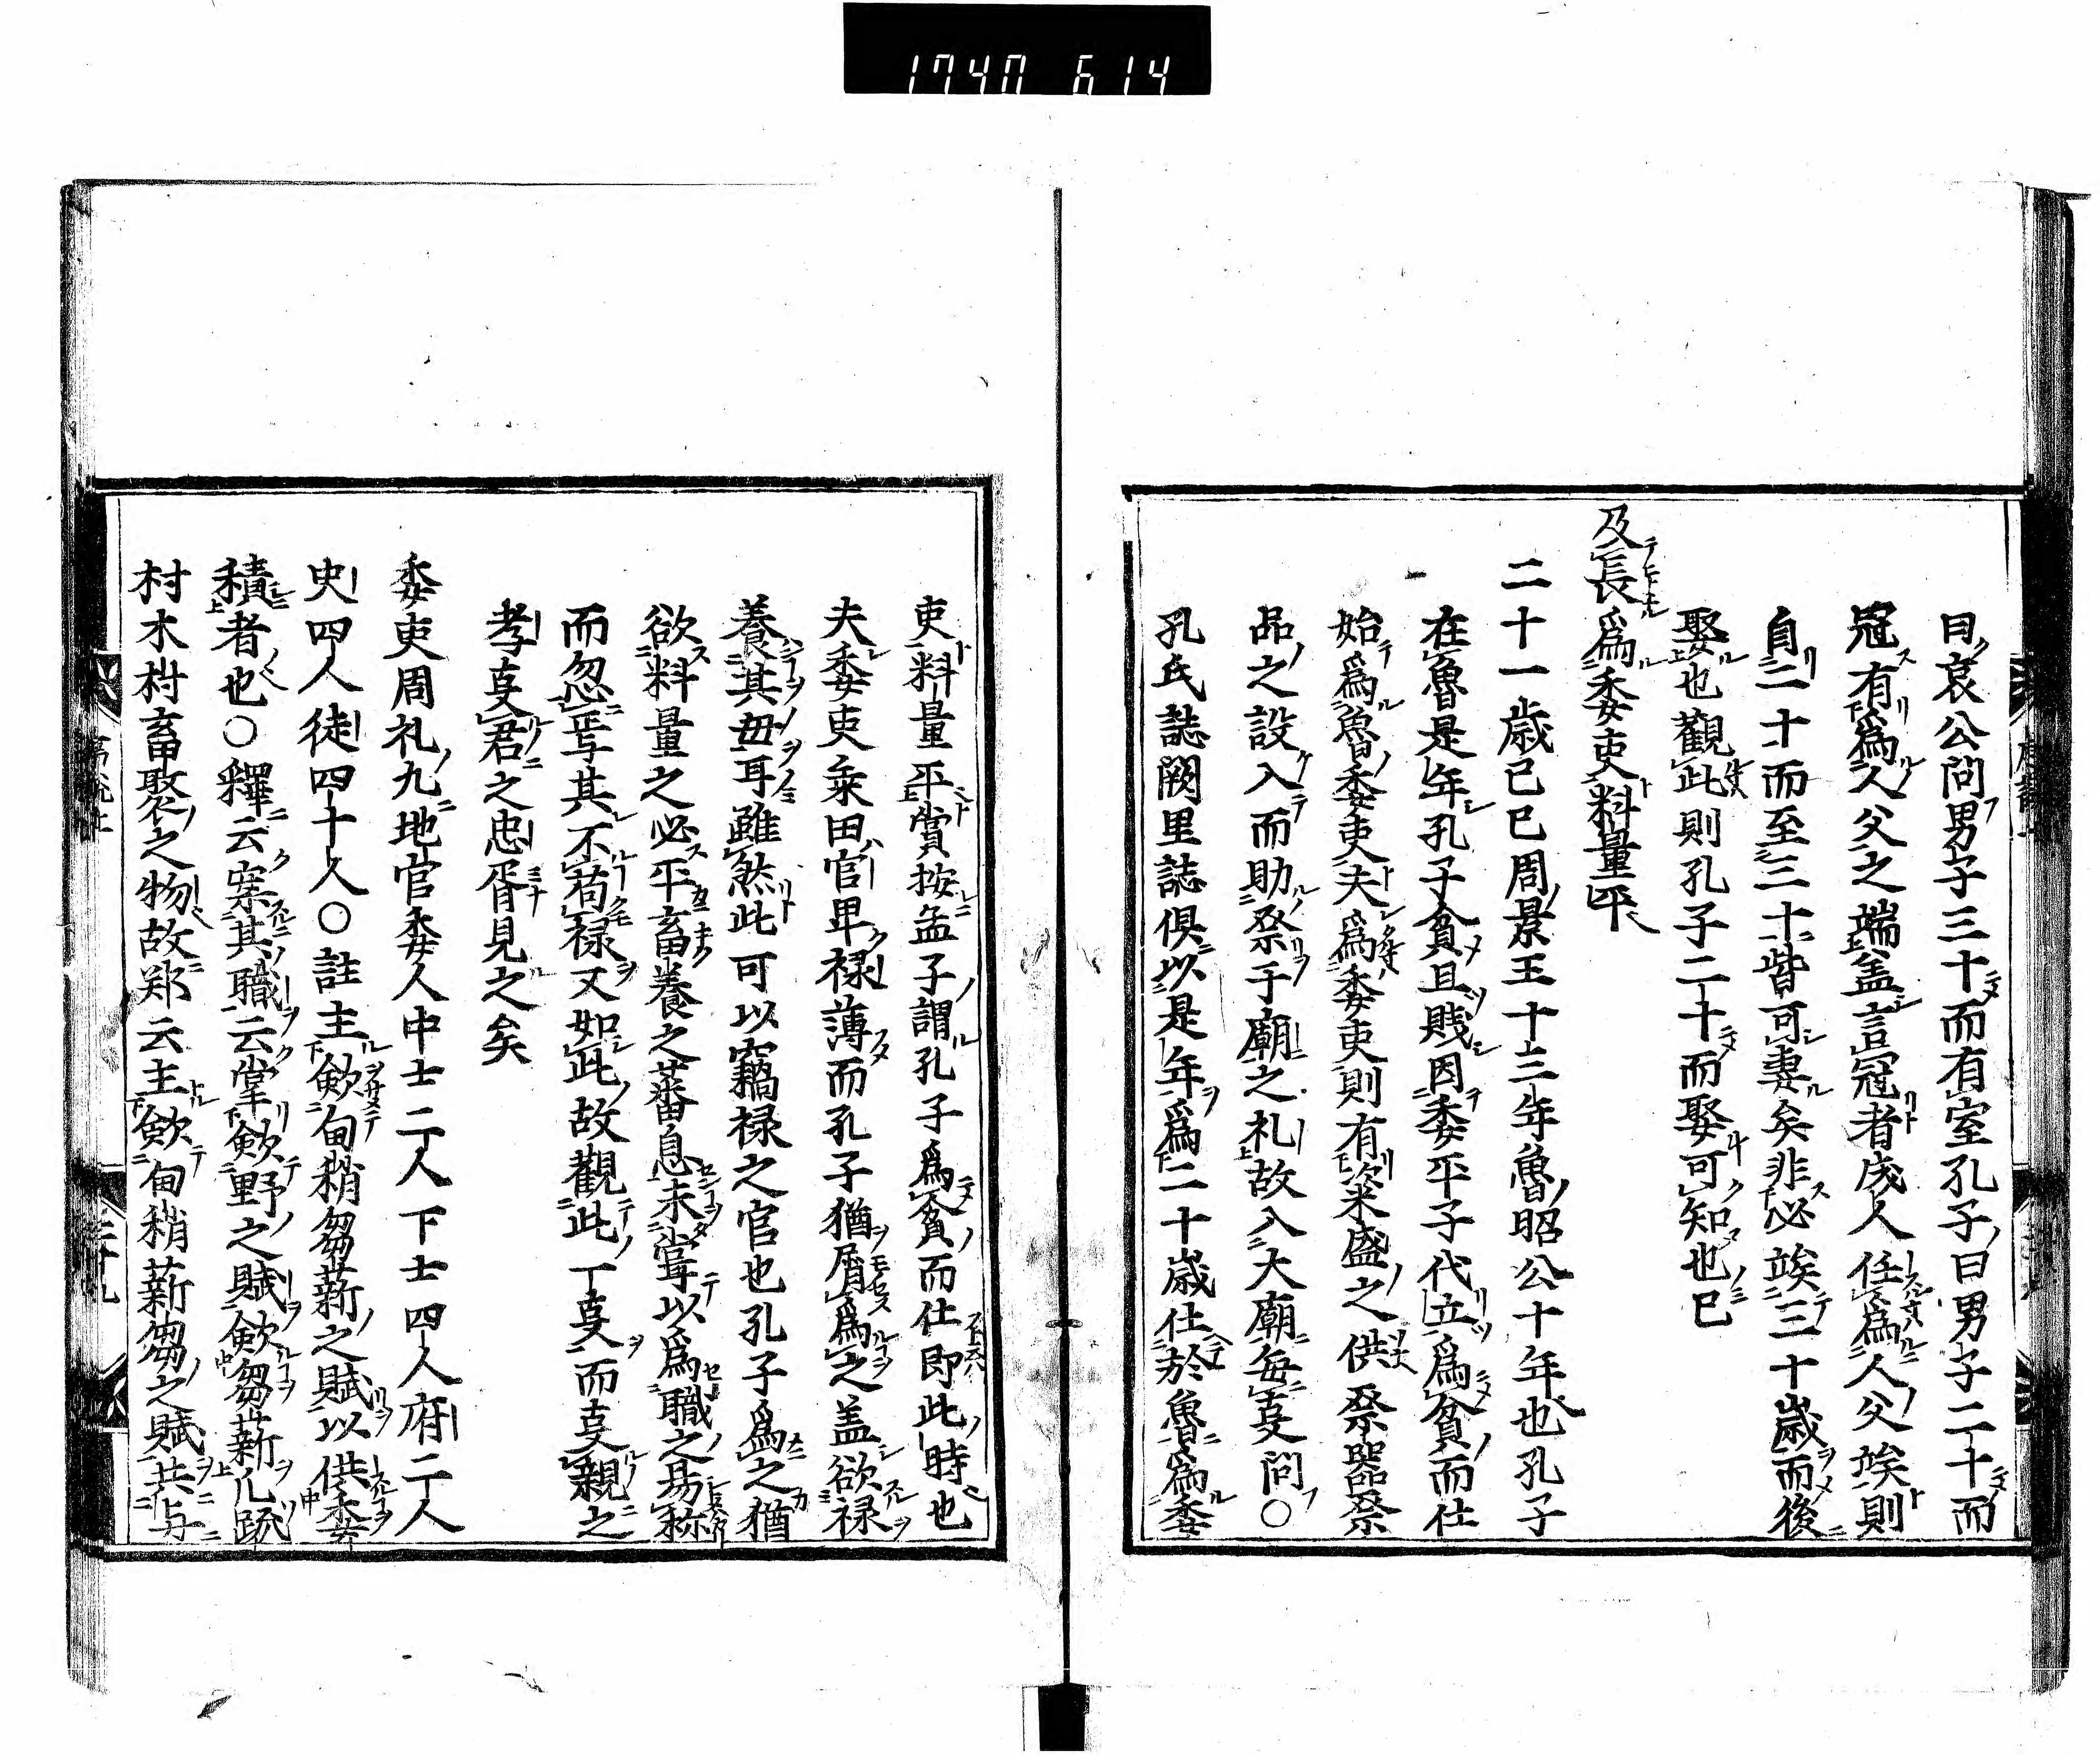 1740 614
曰哀公問男子三十而有室孔子曰男子二十而
冠有爲人父之端盖言冠者成人任爲人父埃則
自二十而至三十皆可妻矣非必竢三十歲而後
娶也觀此則孔子二十而娶可知也已
及長爲委吏料量平
二十一歲己巳周景王十三年魯昭公十年也孔子
在魯是年孔子貧且賤因委平子代立爲貧而仕
始爲魯委吏夫爲委吏則有粢盛之供祭器祭
品之設入而助祭于廟之礼故入大廟每㕝問〇
孔氏誌闕里誌俱以是年爲二十歲仕於魯爲委
吏料量平賞按孟子謂孔子爲貧而仕即此時也
夫委吏乘田官卑禄薄而孔子猶屑爲之盖欲禄
養其毋耳雖煞此可以竊禄之官也孔子爲之猶
欲料量之必平畜養之蕃息未嘗以爲職之易称
而忽焉其不苟禄又如此故觀此一㕝而㕝親之
孝㕝君之忠胥見之矣
委吏周礼九地官委人中士二人下士四人府二人
史四人徒四十人〇註主歛甸稍芻薪之賦以供委
積者也〇釋云案其職云掌歛野之賦歛芻薪凡疏
材木材畜聚之物故郑云主歛甸稍薪芻之賦共与